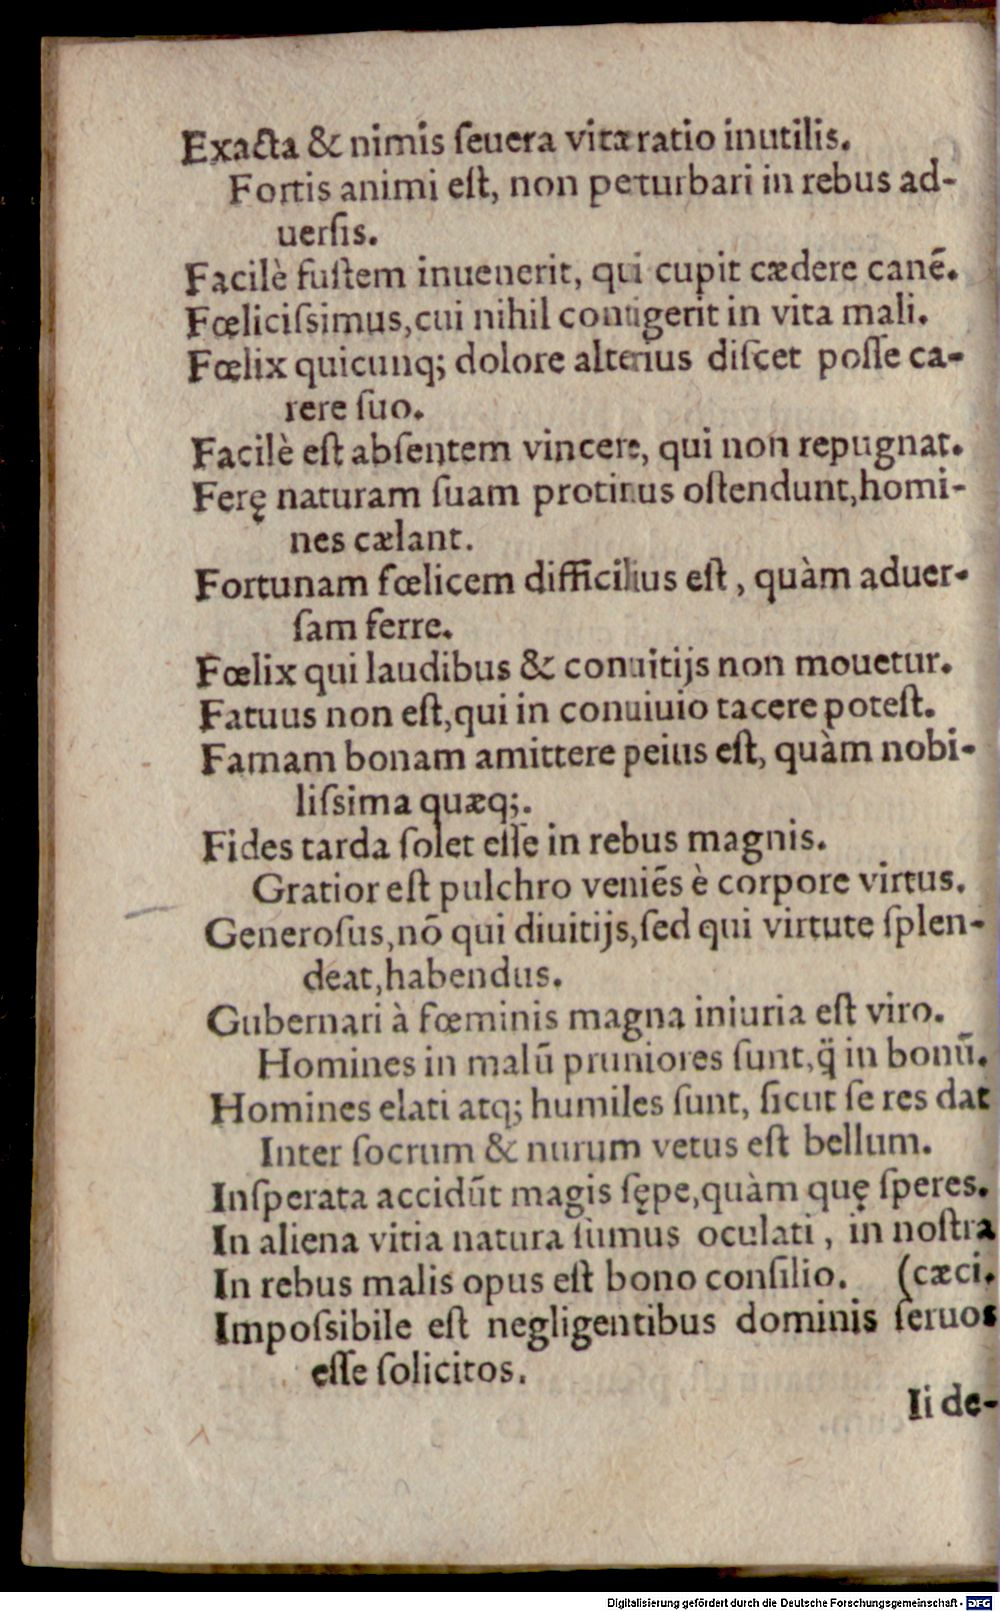 Exacta & nimis ſeuera vitæ ratio inutilis.
Fortis animi eſt, non perturbari in rebus ad-
uerſis.
Facilè fuſtem inuenerit, qui cupit cædere canē.
Fœliciſsimus,cui nihil contigerit in vita mali.
Fœlix quicunq; dolore alterius diſcet poſſe ca-
rere ſuo.
Facilè eſt abſentem vincere, qui non repugnat.
Ferę naturam ſuam protinus oſtendunt,homi-
nes cælant.
Fortunam fœlicem difficilius eſt, quàm aduer-
ſam ferre.
Fœlix qui laudibus & conuitijs non mouetur.
Fatuus non eſt,qui in conuiuio tacere poteſt.
Famam bonam amittere peius eſt, quàm nobi-
liſsima quæq;.
Fides tarda ſolet eſſe in rebus magnis.
Gratior eſt pulchro veniēs è corpore virtus.
Generoſus,nō qui diuitijs,ſed qui virtute ſplen-
deat,habendus.
Gubernari à fœminis magna iniuria eſt viro.
Homines in malū pruniores ſunt,q̈ in bonū.
Homines elati atq; humiles ſunt, ſicut ſe res dat
Inter ſocrum & nurum vetus eſt bellum.
Inſperata accidūt magis ſępe,quàm quę ſperes.
In aliena vitia natura ſumus oculati, in noſtra
In rebus malis opus eſt bono conſilio. (cæci.
Impoſsibile eſt negligentibus dominis ſeruos
eſſe ſolicitos.
Ii de-
Digitalisierung gefördert durch die Deutsche Forschungsgemeinschaft - DFG